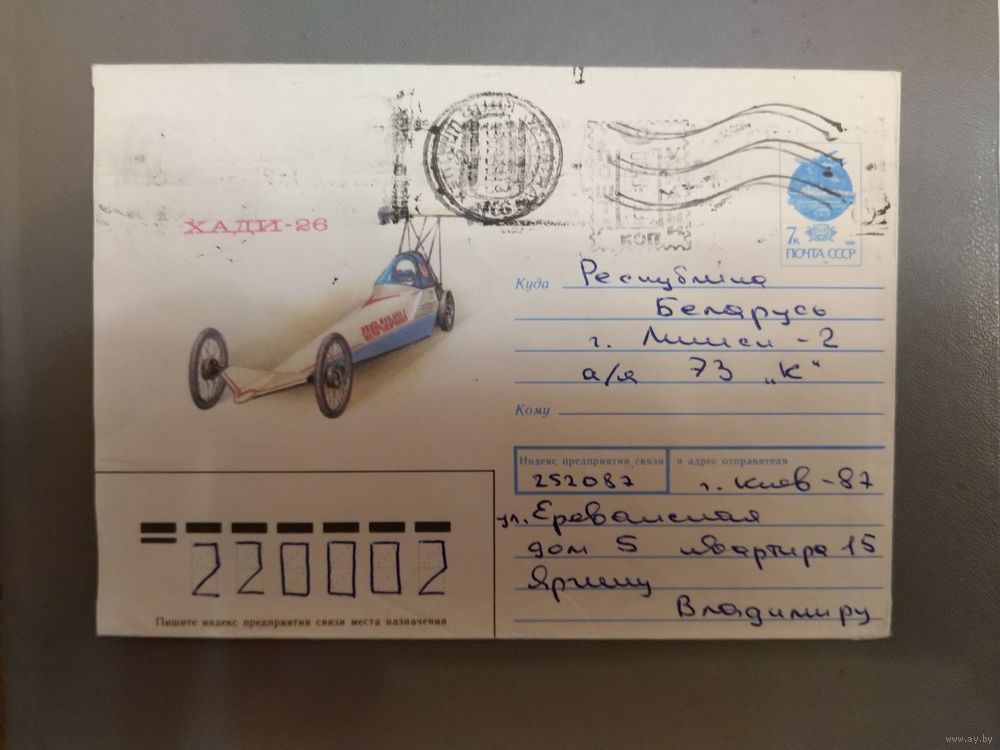 ХАДИ-26
КОП
7к
ПОЧТА СССР
Куда Республика
Беларусь
г. Минск - 2
а/я 73 „К“
Кому
Индекс предприятия связи и адрес отправителя
252087 г. Киев - 87
ул. Ереванская
дом 5 квартира 15
Владимиру
220002
Пишите индекс предприятия связи места назначения
www.ay.by